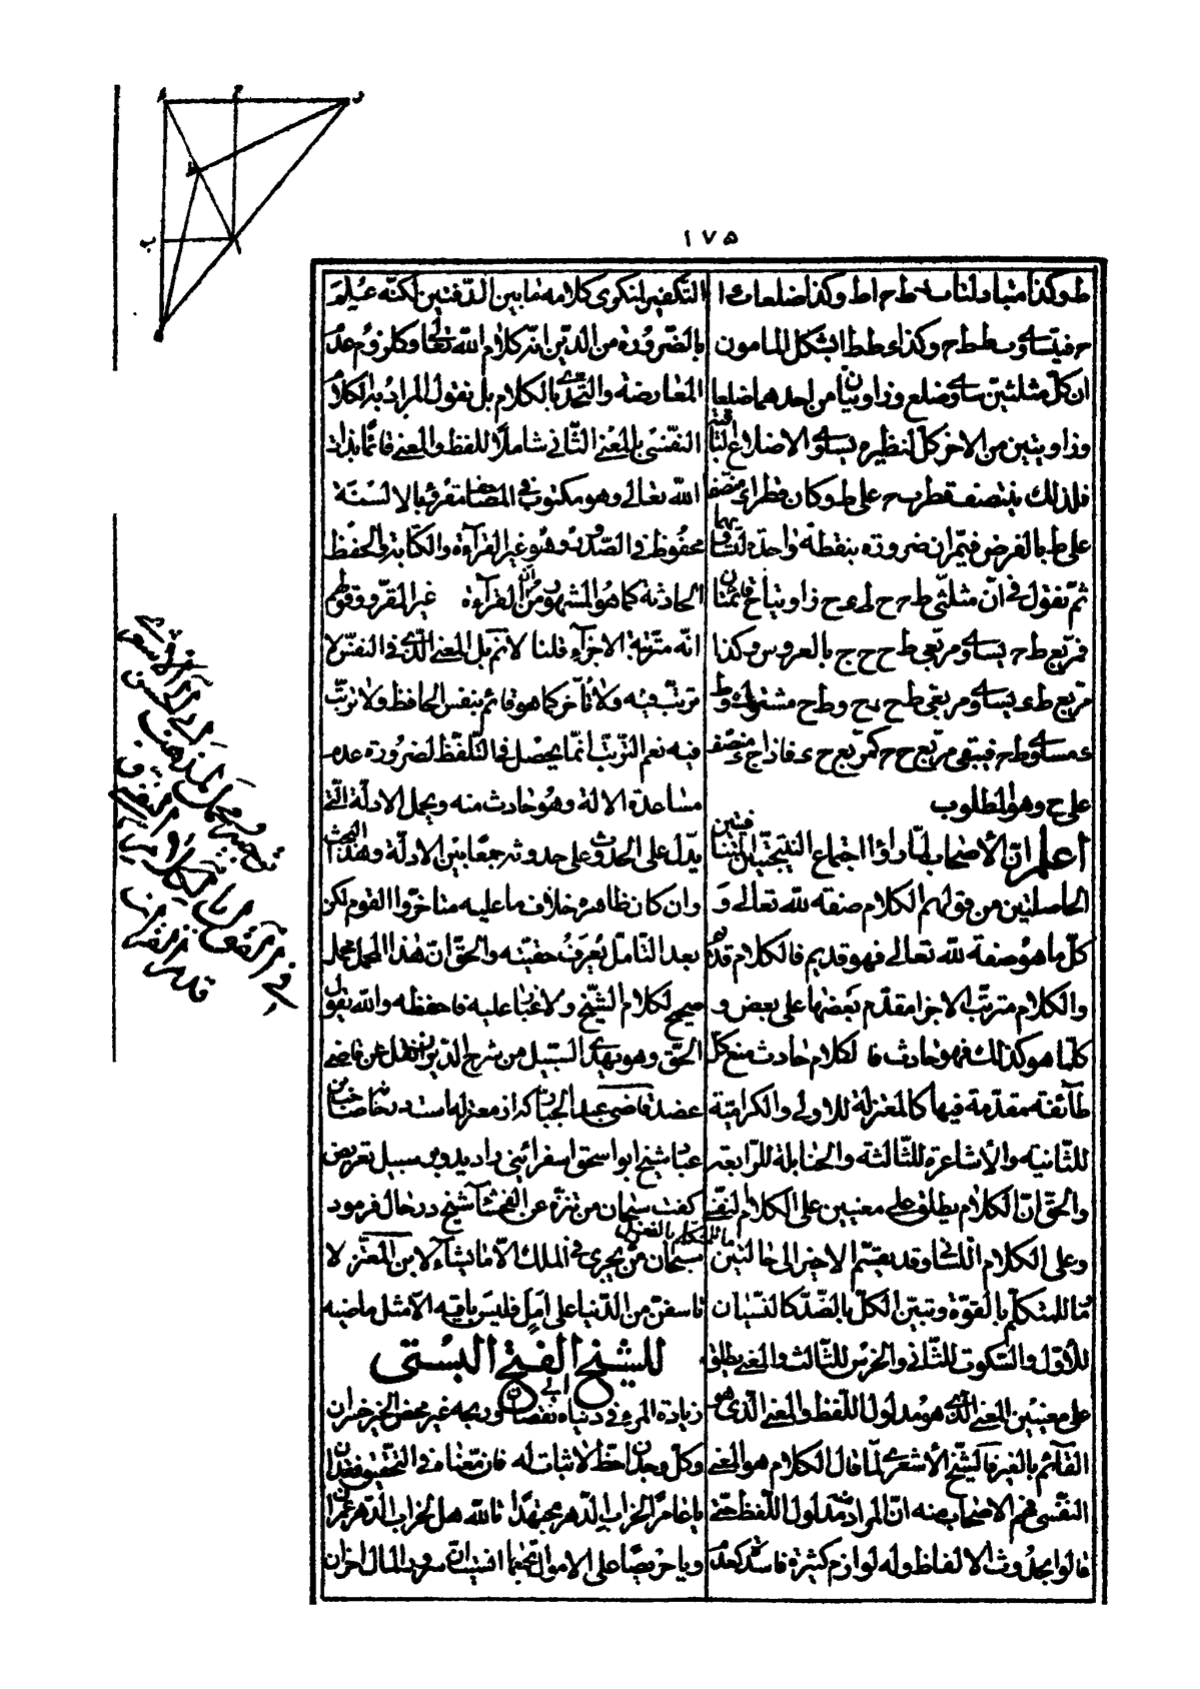 ١٧٥
ط وكذا متبادلتا ب ط ح ا ط وكذا ضلعا ب ا
ح فيتساوى ب ط ط ح وكذا ء ط ط ا بشكل المامون
ان كل مثلثين ساوى ضلع وزاويتان من احدهما ضلعا
وزاويتين من الاخر كل لنظيره يساوى الاضلاع الباقية
فلذلك ينتصف قطر ب ح على ط وكان قطر ا ء منصفا
على ط بالفرض فيمران ضرورة بنقطة واحدة لتساويهما
ثم نقول فى ان مثلثى ط ح ح زاويتا ح قائمتان
فمربع ط ح يساوى مربعى ط ح ح ج بالعروس وكذا
مربع ط ء يساوى مربعى ط ح ح وط ح مشترك وط
ء مساوى ط ح فيبقى مربع ح ح كمربع ح ء فاذا ج ء منصف
على ح وهو المطلوب
اعلم ان الأصحاب لما راوا اجتماع النتيجتين المتنافيتين
الحاصلتين من قولهم الكلام صفة لله تعالى و
كل ما هو صفة لله تعالى فهو قديم فالكلام قديم
والكلام مترتب الاجزا مقدم بعضها على بعض و
كلما هو كذلك فهو حادث فالكلام حادث منع كل
طائفة مقدمة فيها كالمعتزلة للاولى والكرامية
للثانية والأشاعرة للثالثة والحنابلة للرابعة
والحق ان الكلام يطلق على معنيين على الكلام النفسى
وعلى الكلام اللسانى وقد يقسم الاخير الى حالتين
ما للمتكلم بالفعل
ما للمتكلم بالقوة وتبين الكل بالضد كالنسيان
للأول والسكوت للثانى والخرس للثالث والمعنى يطلق
على معنيين المعنى الذى هو مدلول اللفظ والمعنى الذى هو
القائم بالغير فالشيخ الأشعرى لما قال الكلام هو المعنى
النفسى فهم الاصحاب منه ان المراد منه مدلول اللفظ حتى
قالوا بحدوث الالفاظ وله لوازم كثيرة فاسدة كعدم
التكفير لمنكرى كلامه ما بين الدفتين لكنه علم
بالضرورة من الدين انه كلام الله تعالى وكلزوم عدم
المعارضة والتحدى بالكلام بل نقول المراد به الكلام
النفسى بالمعنى الثانى شاملا للفظ والمعنى قائما بذات
الله تعالى وهو مكتوب فى المصاحف مقرو بالالسنة
محفوظ فى الصدور وهو غير القراءة والكتابة والحفظ
الحادثة كما هو المشهور من ان القراءة غير المقرو وقولهم
انه مترتبة الاجزاء قلنا لا نم بل المعنى الذى فى النفس لا
ترتب فيه ولا تأخر كما هو قائم بنفس الحافظ ولا ترتب
فيه نعم الترتب انما يحصل فى التلفظ لضرورة عدم
مساعدة الالة وهو حادث منه ويحمل الادلة التى
يدل على الحدوث على حدوثه جمعا بين الادلة وهذا البحث
وان كان ظاهره خلاف ما عليه متاخروا القوم لكن
بعد التأمل يعرف حقيته والحق ان هذا المحمل محمل
صحيح لكلام الشيخ ولا غبار عليه فاحفظه والله يقول
الحق وهو يهدى السبيل من شرح الديوان نقل عن قاضى
عضد قاضى عبد الجبار كه از معتزله است در خانه صاحب بن
عباد شيخ ابو اسحق اسفراينى را ديد وبر سبيل تعريض
كفت سبحان من تنزه عن الفحشاء شيخ در حال فرمود
سبحان من يجرى فى الملك الا ما يشاء لابن المعتز لا
تاسفن من الدنيا على امل فليس باقيه الا مثل ماضيه
للشيخ ابى الفتح البستى
زيادة المرء فى دنياه نقصان وربحه غير محض الخير خسران
وكل وجدان حظ لا ثبات له فان معناه فى التحقيق فقدان
يا عامرا لخراب الدهر مجتهدا تالله هل لخراب الدهر عمران
ويا حريصا على الاموال تجمعها انسيت ان سرور المال احزان